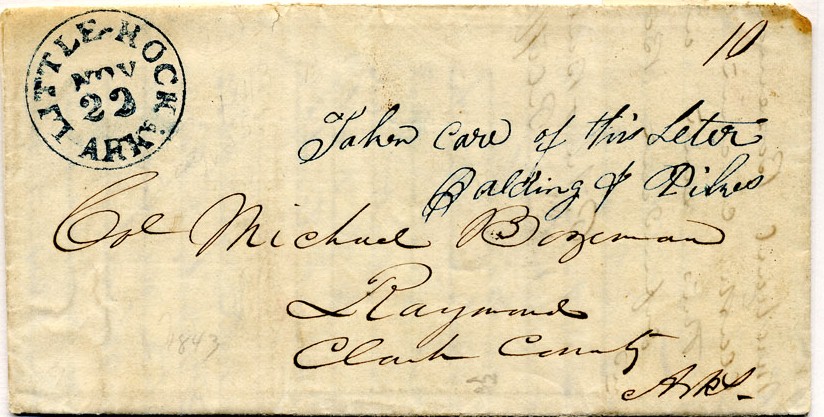 LITTLE-ROCK
NOV
22
ARKs
10
Taken care of this Leter
Balding &
Col Michael Bozeman
Raymond
Clark County
Arks.
1843